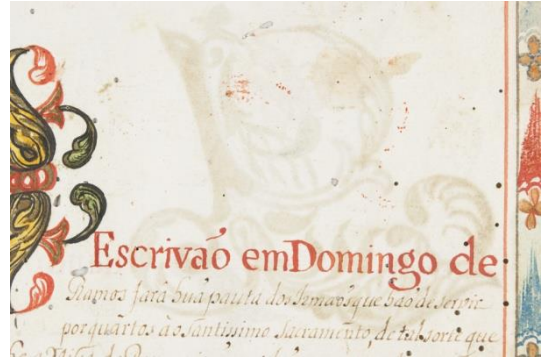 Escrivaõ em Domingo de
Ramos fará hua pauta dos Irmaõs que haõ de servir
por quartos ao Santissimo Sacramento, de tal sorte que